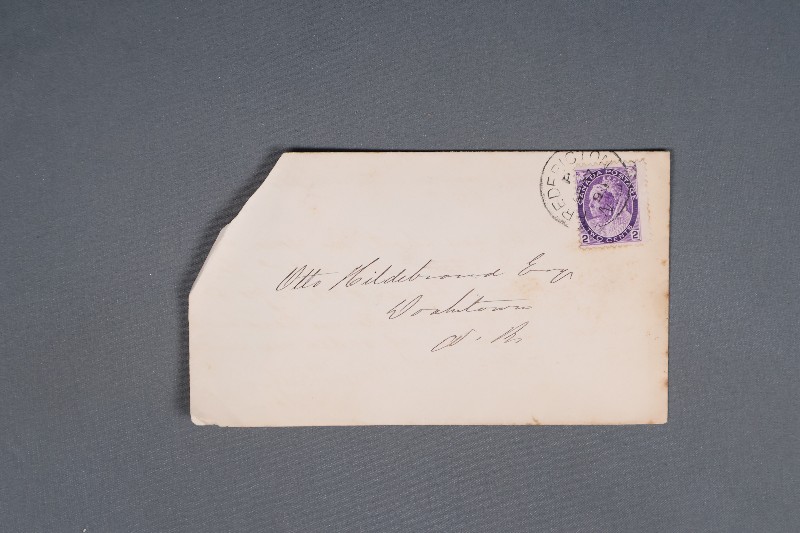 FREDERICTON
CANADA POSTAGE
2 TWO CENTS 2
Otto Hildebrand Esqr
Doaktown
N. B.